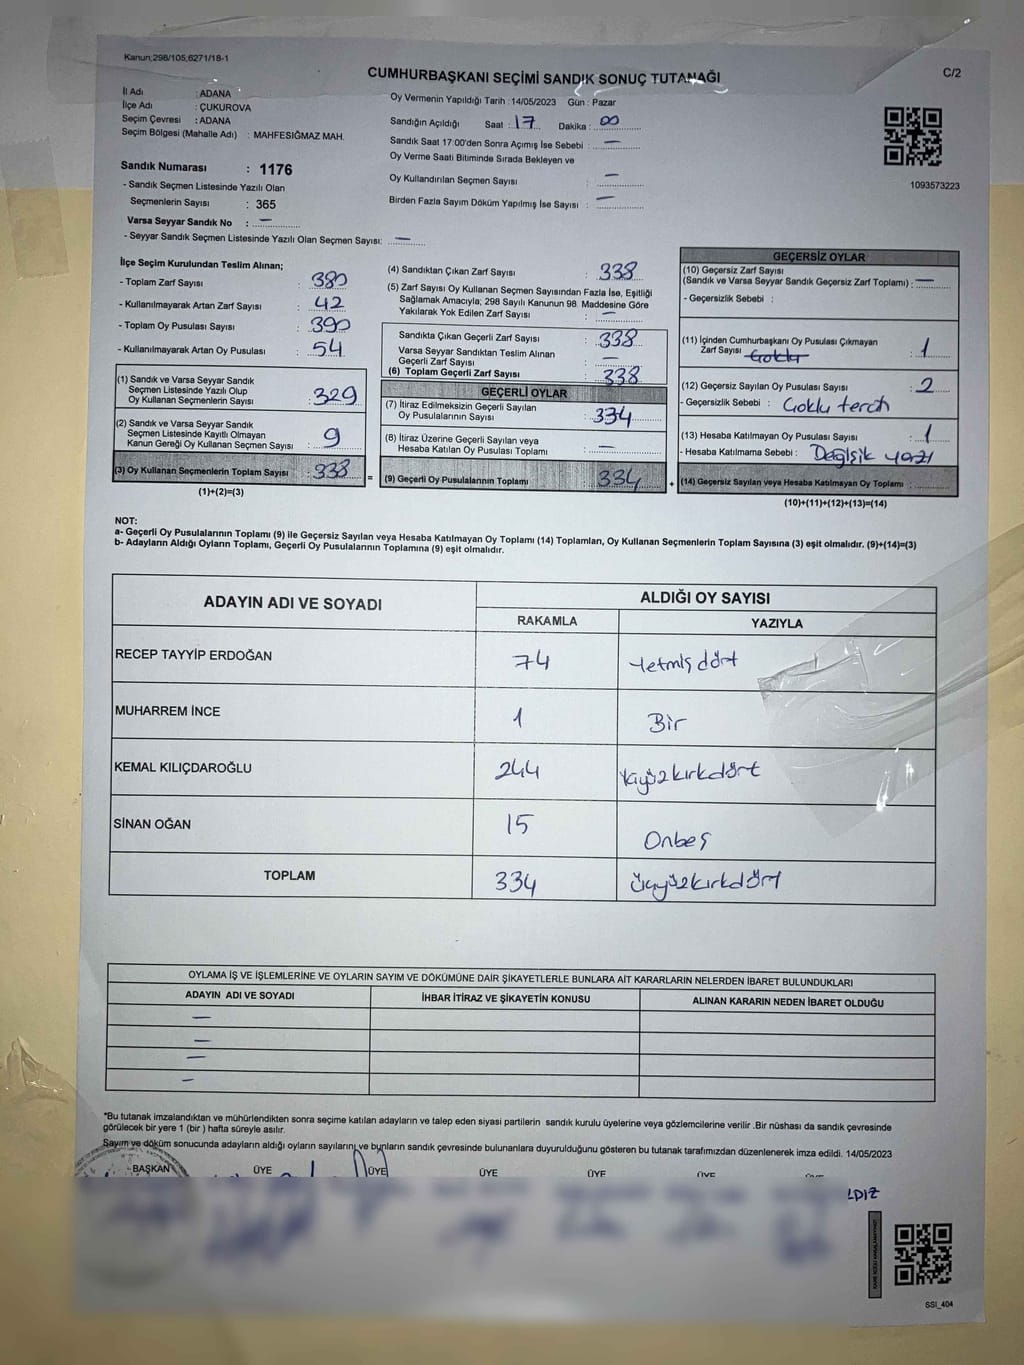 Kanun;298/105,6271/18-1
CUMHURBAŞKANI SEÇİMİ SANDIK SONUÇ TUTANAĞI
C/2
İl Adı : ADANA
İlçe Adı : ÇUKUROVA
Seçim Çevresi : ADANA
Seçim Bölgesi (Mahalle Adı) : MAHFESIĞMAZ MAH.
Sandık Numarası : 1176
- Sandık Seçmen Listesinde Yazılı Olan
Seçmenlerin Sayısı : 365
Varsa Seyyar Sandık No : —
- Seyyar Sandık Seçmen Listesinde Yazılı Olan Seçmen Sayısı: —
Oy Vermenin Yapıldığı Tarih : 14/05/2023 Gün : Pazar
Sandığın Açıldığı Saat : 17 Dakika : 00
Sandık Saat 17:00'den Sonra Açımış İse Sebebi : —
Oy Verme Saati Bitiminde Sırada Bekleyen ve
Oy Kullandırılan Seçmen Sayısı : —
Birden Fazla Sayım Döküm Yapılmış İse Sayısı : —
1093573223
İlçe Seçim Kurulundan Teslim Alınan;
- Toplam Zarf Sayısı : 380
- Kullanılmayarak Artan Zarf Sayısı : 42
- Toplam Oy Pusulası Sayısı : 390
- Kullanılmayarak Artan Oy Pusulası : 54
(1) Sandık ve Varsa Seyyar Sandık
Seçmen Listesinde Yazılı Olup
Oy Kullanan Seçmenlerin Sayısı : 329
(2) Sandık ve Varsa Seyyar Sandık
Seçmen Listesinde Kayıtlı Olmayan
Kanun Gereği Oy Kullanan Seçmen Sayısı : 9
(3) Oy Kullanan Seçmenlerin Toplam Sayısı : 338 =
(1)+(2)=(3)
(4) Sandıktan Çıkan Zarf Sayısı : 338
(5) Zarf Sayısı Oy Kullanan Seçmen Sayısından Fazla İse, Eşitliği
Sağlamak Amacıyla; 298 Sayılı Kanunun 98. Maddesine Göre
Yakılarak Yok Edilen Zarf Sayısı : —
Sandıkta Çıkan Geçerli Zarf Sayısı : 338
Varsa Seyyar Sandıktan Teslim Alınan
Geçerli Zarf Sayısı : —
(6) Toplam Geçerli Zarf Sayısı : 338
GEÇERLİ OYLAR
(7) İtiraz Edilmeksizin Geçerli Sayılan
Oy Pusulalarının Sayısı : 334
(8) İtiraz Üzerine Geçerli Sayılan veya
Hesaba Katılan Oy Pusulası Toplamı : —
(9) Geçerli Oy Pusulalarının Toplamı : 334 +
GEÇERSİZ OYLAR
(10) Geçersiz Zarf Sayısı
(Sandık ve Varsa Seyyar Sandık Geçersiz Zarf Toplamı) : —
- Geçersizlik Sebebi :
(11) İçinden Cumhurbaşkanı Oy Pusulası Çıkmayan
Zarf Sayısı : 1
(12) Geçersiz Sayılan Oy Pusulası Sayısı : 2
- Geçersizlik Sebebi : Çoklu tercih
(13) Hesaba Katılmayan Oy Pusulası Sayısı : 1
- Hesaba Katılmama Sebebi : Değişik yazı
(14) Geçersiz Sayılan veya Hesaba Katılmayan Oy Toplamı :
(10)+(11)+(12)+(13)=(14)
NOT:
a- Geçerli Oy Pusulalarının Toplamı (9) ile Geçersiz Sayılan veya Hesaba Katılmayan Oy Toplamı (14) Toplamları, Oy Kullanan Seçmenlerin Toplam Sayısına (3) eşit olmalıdır. (9)+(14)=(3)
b- Adayların Aldığı Oyların Toplamı, Geçerli Oy Pusulalarının Toplamına (9) eşit olmalıdır.
ADAYIN ADI VE SOYADI ALDIĞI OY SAYISI
RAKAMLA YAZIYLA
RECEP TAYYİP ERDOĞAN 74 Yetmiş dört
MUHARREM İNCE 1 Bir
KEMAL KILIÇDAROĞLU 244 İkiyüzkırkdört
SİNAN OĞAN 15 Onbeş
TOPLAM 334 Üçyüzkırkdört
OYLAMA İŞ VE İŞLEMLERİNE VE OYLARIN SAYIM VE DÖKÜMÜNE DAİR ŞİKAYETLERLE BUNLARA AİT KARARLARIN NELERDEN İBARET BULUNDUKLARI
ADAYIN ADI VE SOYADI İHBAR İTİRAZ VE ŞİKAYETİN KONUSU ALINAN KARARIN NEDEN İBARET OLDUĞU
—
—
—
—
*Bu tutanak imzalandıktan ve mühürlendikten sonra seçime katılan adayların ve talep eden siyasi partilerin sandık kurulu üyelerine veya gözlemcilerine verilir .Bir nüshası da sandık çevresinde
görülecek bir yere 1 (bir ) hafta süreyle asılır.
Sayım ve döküm sonucunda adayların aldığı oyların sayılarını ve bunların sandık çevresinde bulunanlara duyurulduğunu gösteren bu tutanak tarafımızdan düzenlenerek imza edildi. 14/05/2023
BAŞKAN ÜYE ÜYE ÜYE ÜYE ÜYE
LDIZ
SSI_404